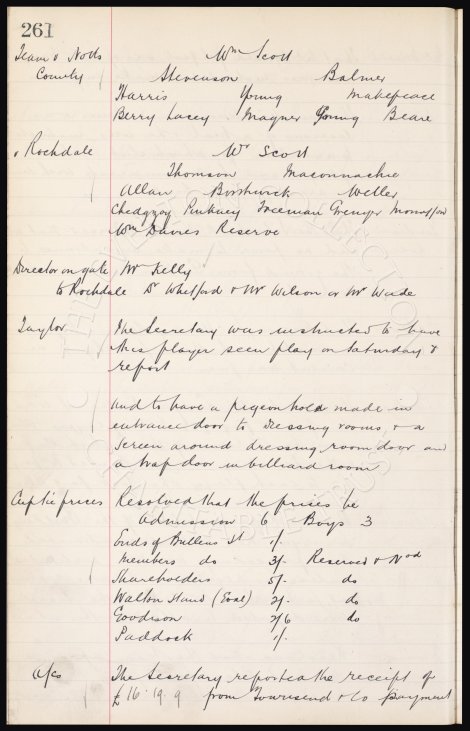 261
Team v Notts Wm Scott
County Stevenson Balmer
Harris Young Makepeace
Berry Lacey Magner Young Beare
v Rochdale Wr Scott
Thomson Maconnachie
Allan Borthwick Weller
Chedgzoy Pinkney Freeman Grenyer Mountford
Wm Davies Reserve
Director on gate Mr Kelly
to Rochdale Dr Whitford & Mr Wilson or Mr Wade
Taylor The Secretary was instructed to have
this player seen play on Saturday &
report
and to have a pigeonhole made in
entrance door to dressing rooms, & a
screen around dressing room door and
a trap door in billiard room
Cup tie prices Resolved that the prices be
Admission 6 Boys 3
Ends of Bullens St 1/-
Members do 3/- Reserved & Nod
Shareholders 5/- do
Walton Stand (Goal) 2/- do
Goodison 2/6 do
Paddock 1/-
A/cs The Secretary reported the receipt of
£16.19.9 from Townsend & Co payment